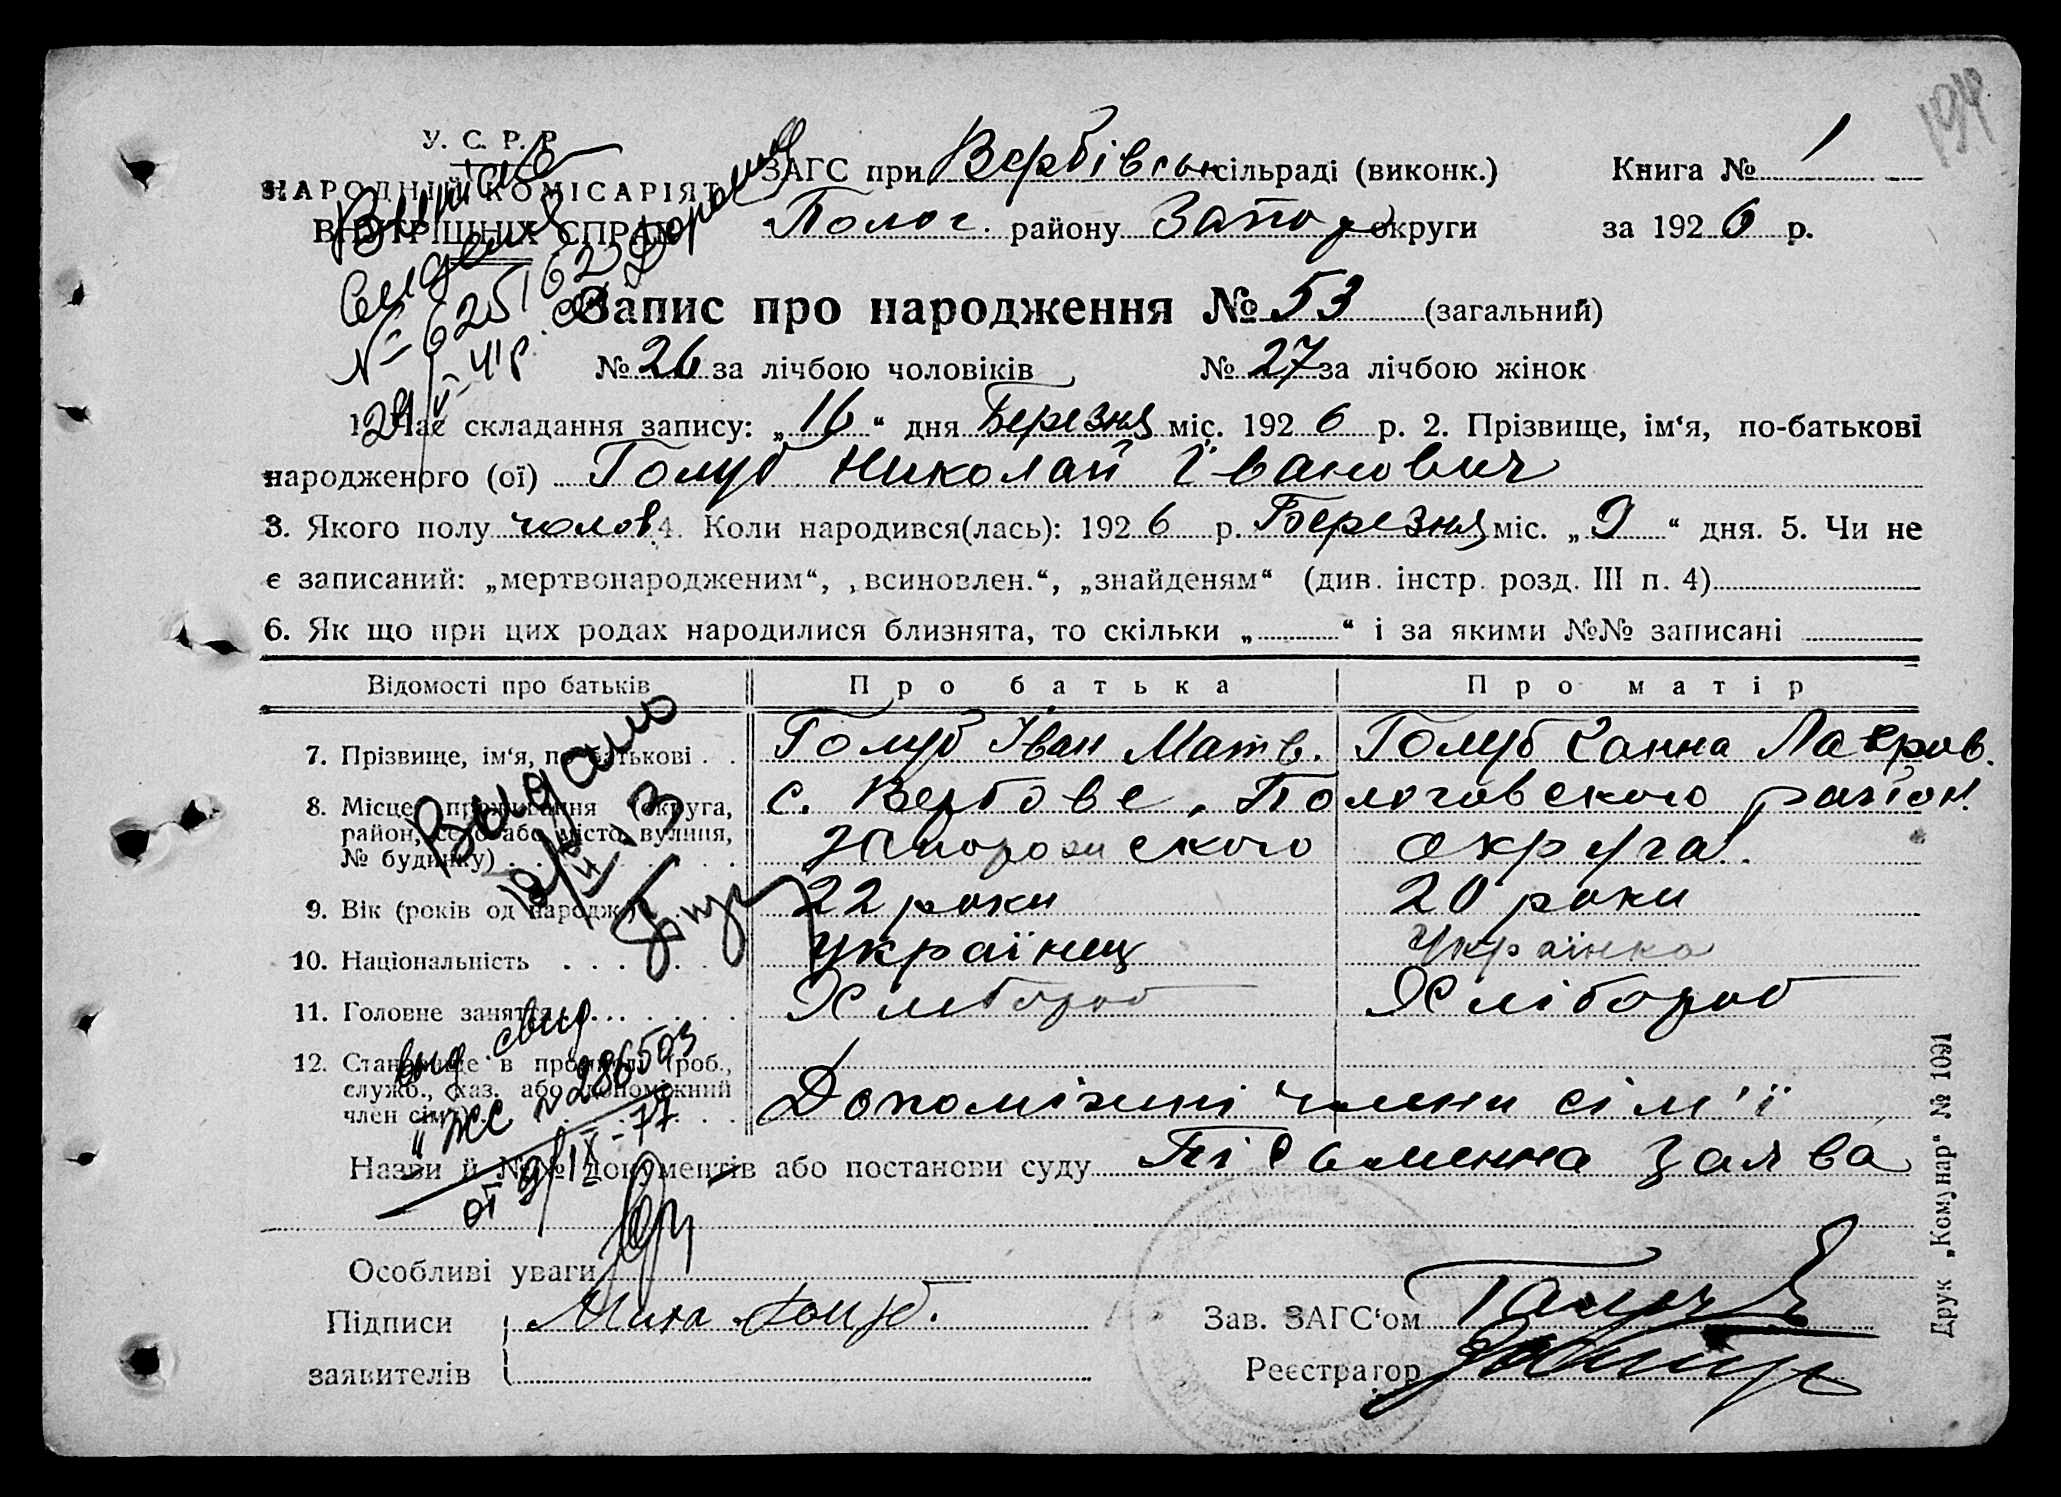 194
У. С. Р. Р.
НАРОДНІЙ КОМІСАРІЯТ
ВНУТРІШНІХ СПРАВ
ЗАГС при Вербівськ сільраді (виконк.) Книга № 1
Полог. району Запор округи за 1926 р.
Запис про народження № 53 (загальний)
№ 26 за лічбою чоловіків № 27 за лічбою жінок
1. Час складання запису: „16“ дня Березня міс. 1926 р. 2. Прізвище, ім‘я, по-батькові
народженого (ої) Голуб Николай Іванович
3. Якого полу чолов 4. Коли народився(лась): 1926 р. Березня міс. „9“ дня. 5. Чи не
є записаний: „мертвонародженим“, „всиновлен.“, „знайденям“ (див. інстр. розд. III п. 4)
6. Як що при цих родах народилися близнята, то скільки „ “ і за якими №№ записані
Відомості про батьків Про батька Про матір
7. Прізвище, ім‘я, по батькові . . Голуб Іван Матв. Голуб Ганна Лавров.
8. Місце проживання (округа,
район, село або місто, вулиця,
№ будинку)
с. Вербове, Пологовского район.
Запорожского округа.
9. Вік (років од народж.) 22 роки 20 роки
10. Національність Українец Українка
11. Головне заняття Хлібороб Хлібороб
12. Становище в промислі (роб.,
служб., хаз. або допоміжний
член сім‘ї)
Допоміжні члени сім'ї
Назви й №№ документів або постанови суду Письменна заява
Особливі уваги
Підписи
заявителів
Голуб.
Зав. ЗАГС‘ом
Реєстратор
Друк „Комунар“ № 1091
Видано
вид. свид
ЖС № 286503
от 9/IX-77